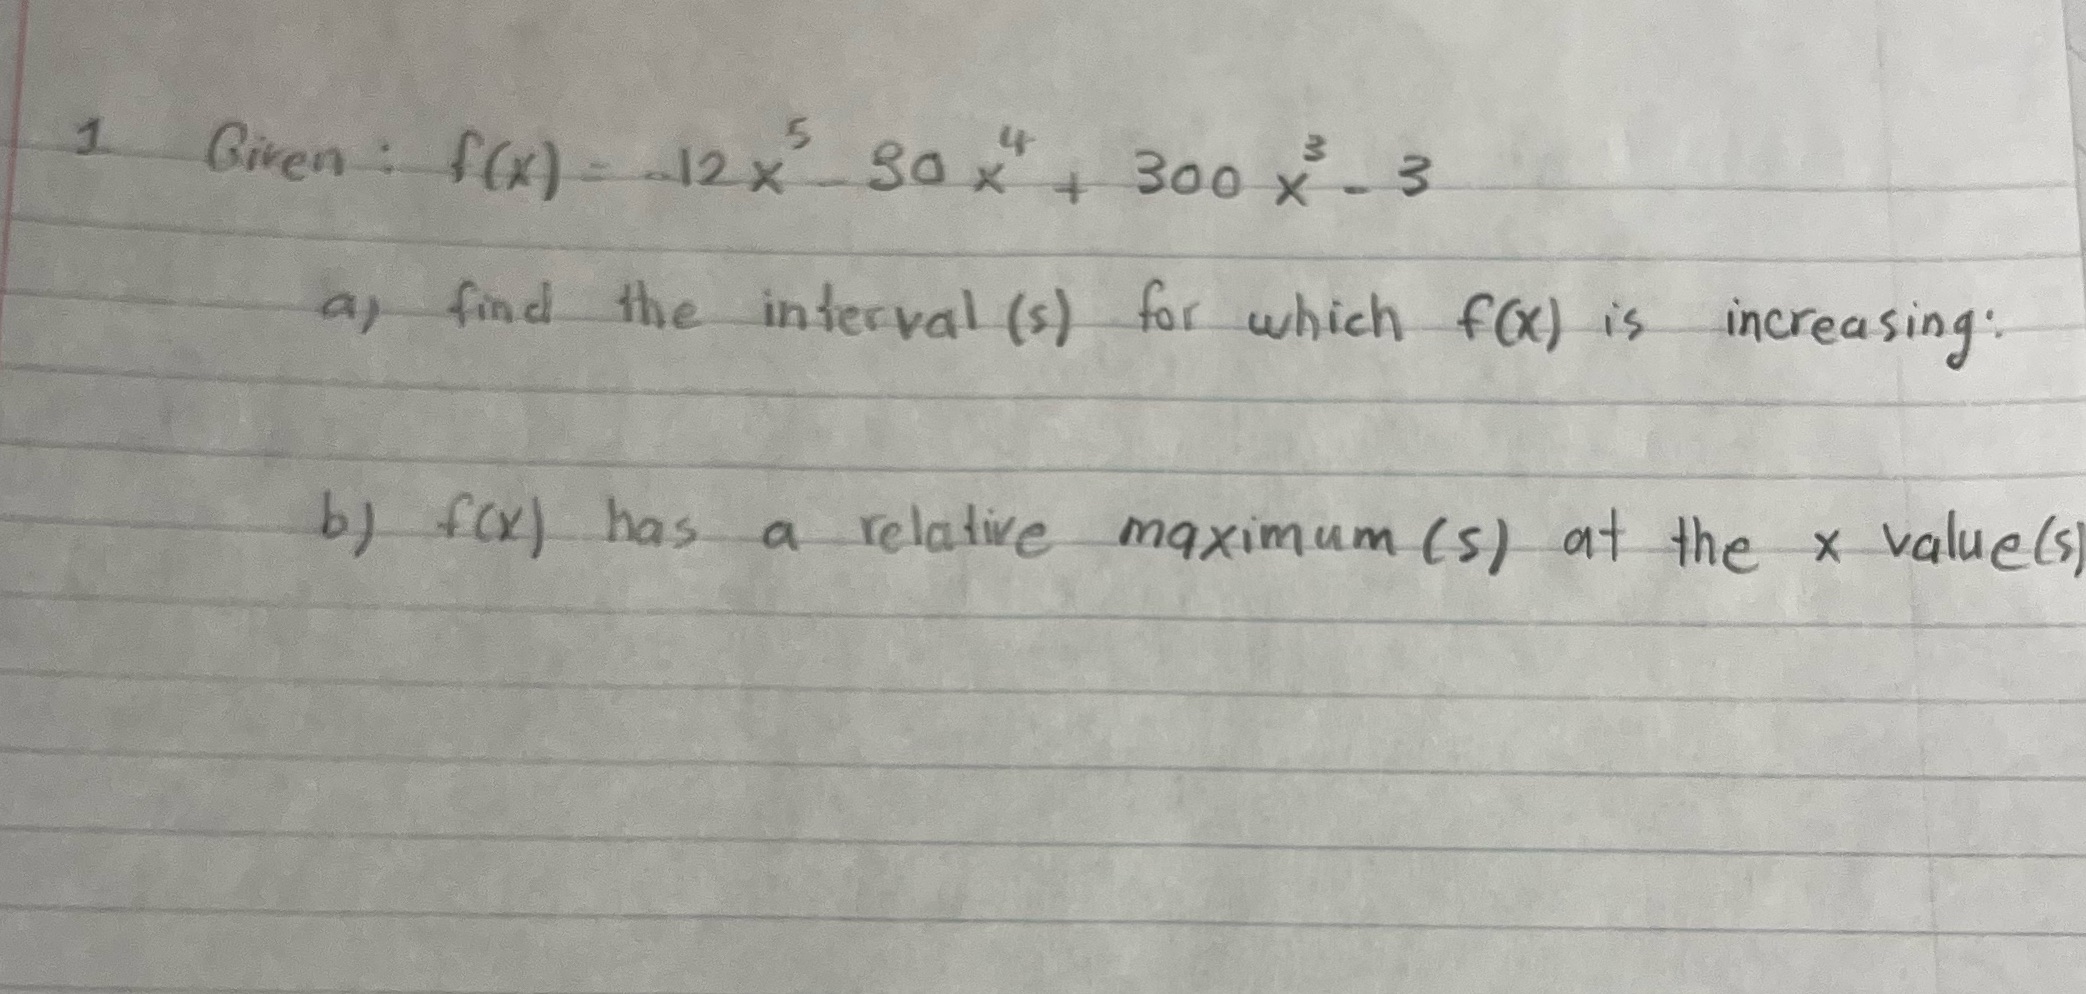 1 Given: f(x) = -12x⁵ - 90x⁴ + 300x³ - 3
a) find the interval(s) for which f(x) is increasing:
b) f(x) has a relative maximum(s) at the x value(s)